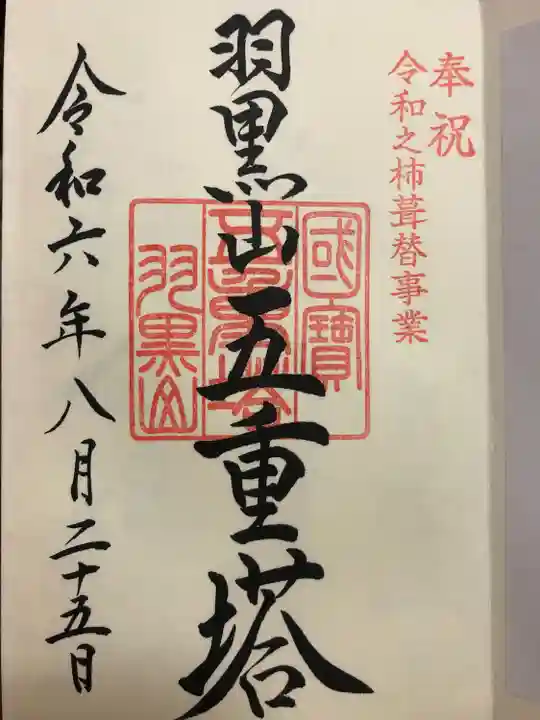 奉祝
令和之杮葺替事業
羽黒山五重塔
國寶
五重塔
羽黒山
令和六年八月二十五日